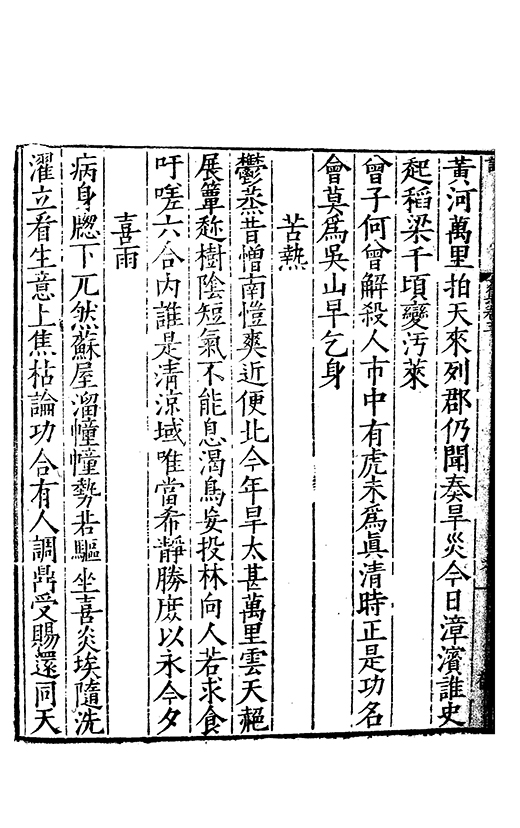 黃河萬里拍天來列郡仍聞奏旱災今日漳濱誰史
起稻梁千頃變汚萊
曾子何曾解殺人市中有虎未爲眞清時正是功名
會莫爲吳山早乞身
苦熱
鬱蒸昔憎南愷爽近便北今年旱太甚萬里雲天赩
展簟趂樹陰短氣不能息渴鳥妄投林向人若求食
吁嗟六合內誰是清涼域唯當希靜勝庶以永今夕
喜雨
病身牎下兀然蘇屋溜幢幢勢若驅坐喜炎埃隨洗
濯立看生意上焦枯論功合有人調鼎受賜還同天